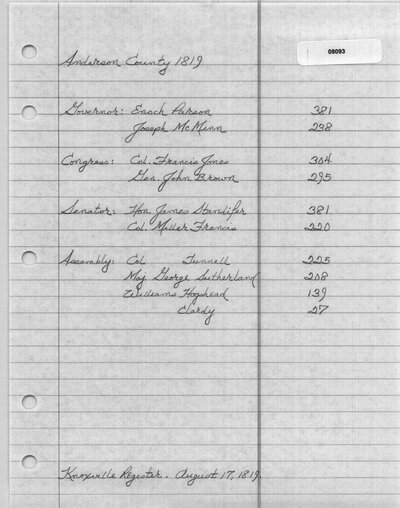 08093
Anderson County 1819
Governor: Enoch Parson 381
Joseph McMinn 238
Congress: Col. Francis Jones 304
Gen. John Brown 295
Senator: Hon. James Standifer 381
Col. Miller Francis 220
Assembly: Col Tunnell 225
Maj George Sutherland 208
Williams Hogshead 139
Clardy 27
Knoxville Register. August 17, 1819.